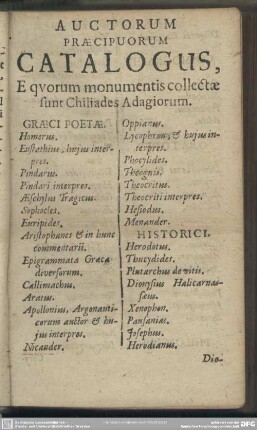 AUCTORUM
PRÆCIPUORUM
CATALOGUS,
E qvorum monumentis collectæ
sunt Chiliades Adagiorum.
GRÆCI POETÆ.
Homerus.
Eustathius, hujus inter-
pres.
Pindarus.
Pindari interpres.
Æschylus Tragicus.
Sophocles.
Euripides.
Aristophanes & in hunc
commentarii.
Epigrammata Græca
diversorum.
Callimachus.
Aratus.
Apollonius, Argonauti-
corum auctor & hu-
jus interpres.
Nicander.
Oppianus.
Lycophron, & hujus in-
terpres.
Phocylides.
Theognis.
Theocritus.
Theocriti interpres.
Hesiodus.
Menander.
HISTORICI.
Herodotus.
Thucydides.
Plutarchus de vitis.
Dionysius Halicarnas-
sæus.
Xenophon.
Pausanias.
Josephus.
Herodianus.
Dio-